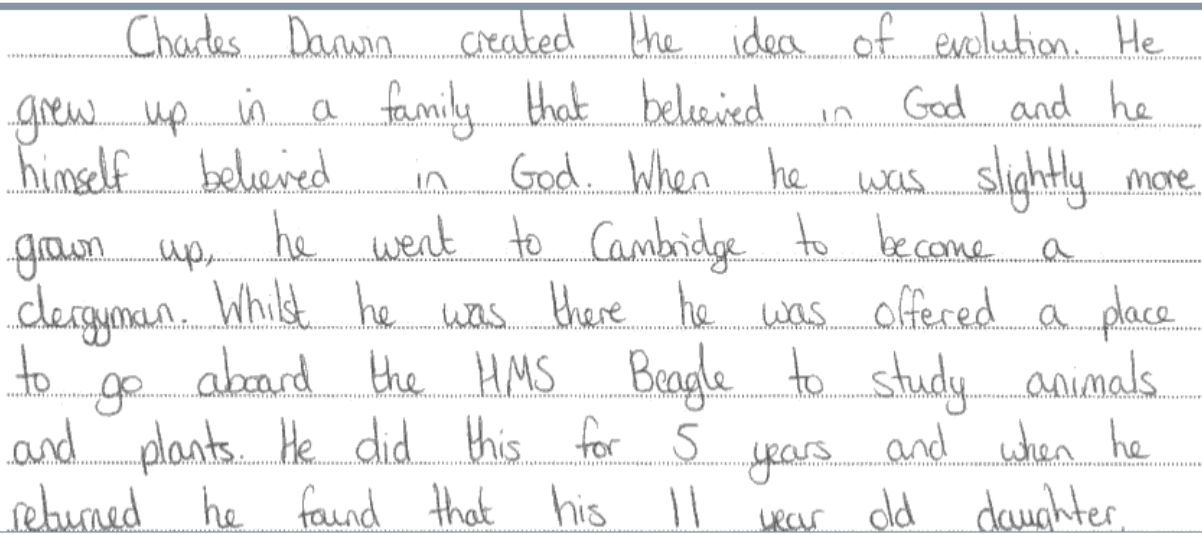 Charles Darwin created the idea of evolution. He
grew up in a family that believed in God and he
himself believed in God. When he was slightly more
grown up, he went to Cambridge to become a
clergyman. Whilst he was there he was offered a place
to go aboard the HMS Beagle to study animals
and plants. He did this for 5 years and when he
returned he found that his 11 year old daughter